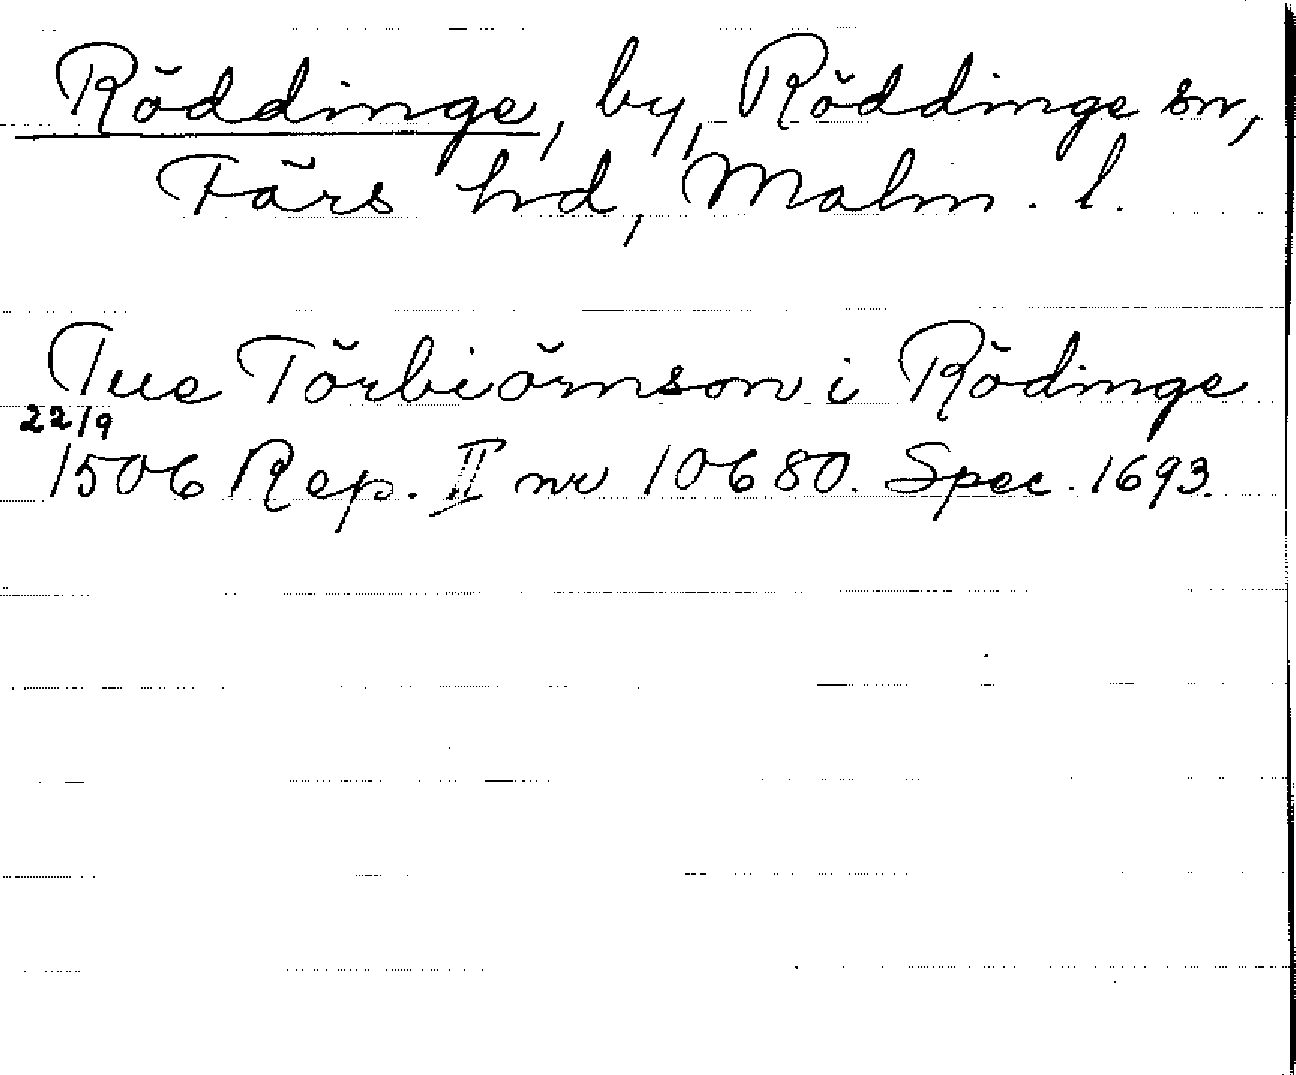 Röddinge, by, Röddinge sn,
Färs hd, Malm. l.
Tue Törbiörnson i Rödinge
22/9
1506 Rep. II nr 10680. Spec. 1693.